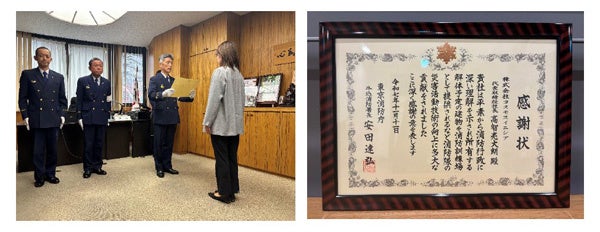 感謝状
株式会社コスモスイニシア
代表取締役社長 高智亮大朗 殿
貴社は平素から消防行政に
深い理解を示され所有する
解体予定の建物を消防訓練場
として提供されるなど消防隊の
災害活動技術の向上に多大な
貢献をされました
ここに感謝の意を表します
令和七年十一月十日
東京消防庁
消防署長 安田達弘